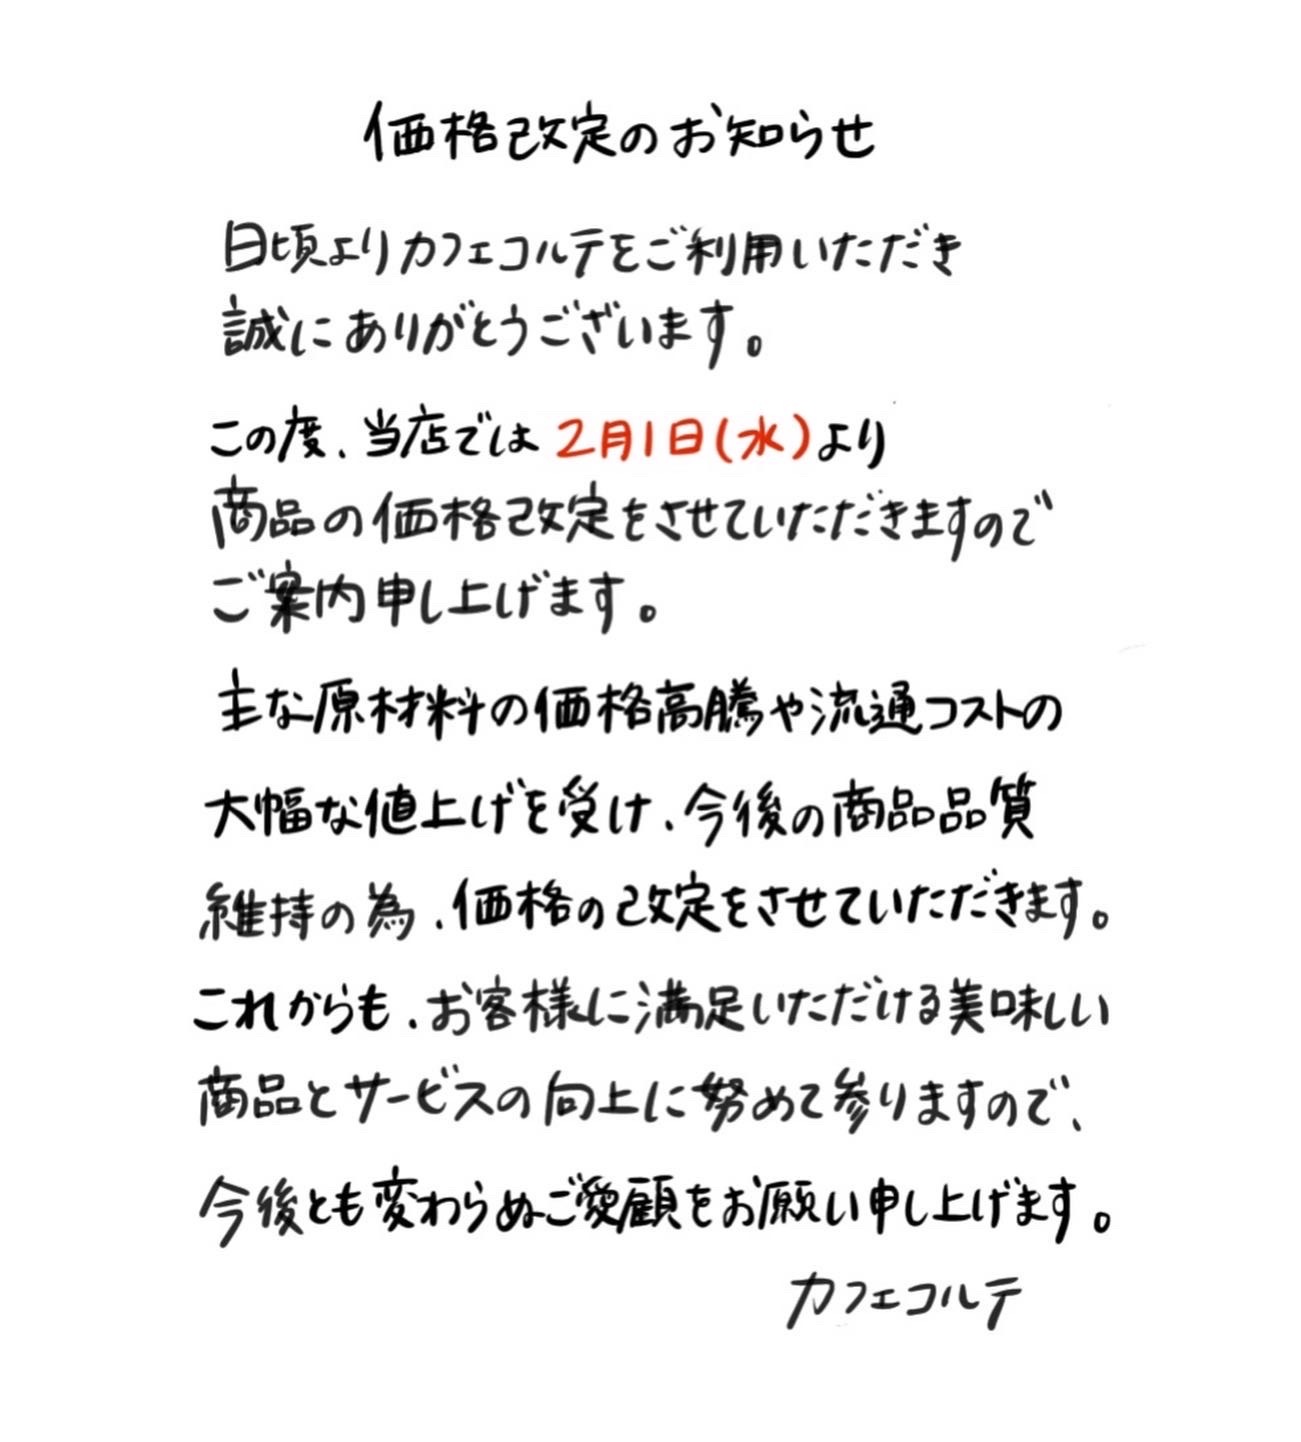 価格改定のお知らせ
日頃よりカフェコルテをご利用いただき
誠にありがとうございます。
この度、当店では2月1日(水)より
商品の価格改定をさせていただきますので
ご案内申し上げます。
主な原材料の価格高騰や流通コストの
大幅な値上げを受け、今後の商品品質
維持の為、価格の改定をさせていただきます。
これからも、お客様に満足いただける美味しい
商品とサービスの向上に努めて参りますので、
今後とも変わらぬご愛顧をお願い申し上げます。
カフェコルテ